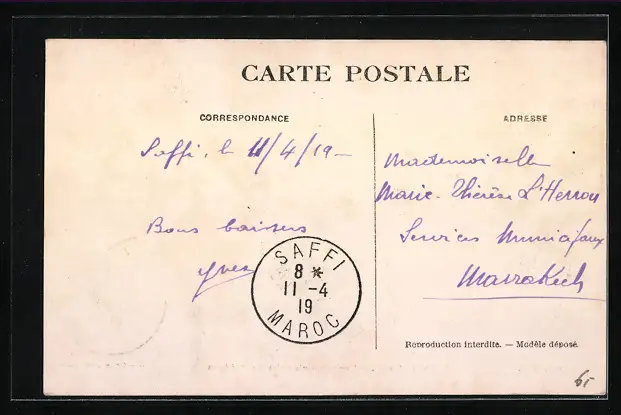 CARTE POSTALE
CORRESPONDANCE
ADRESSE
Saffi, le 11/4/19 -
Bons baisers
Yves
SAFFI
8 *
11 - 4
19
MAROC
Mademoiselle
Marie-Thérèse L'Herrou
Services Municipaux
Marrakech
Reproduction interdite. — Modèle déposé.